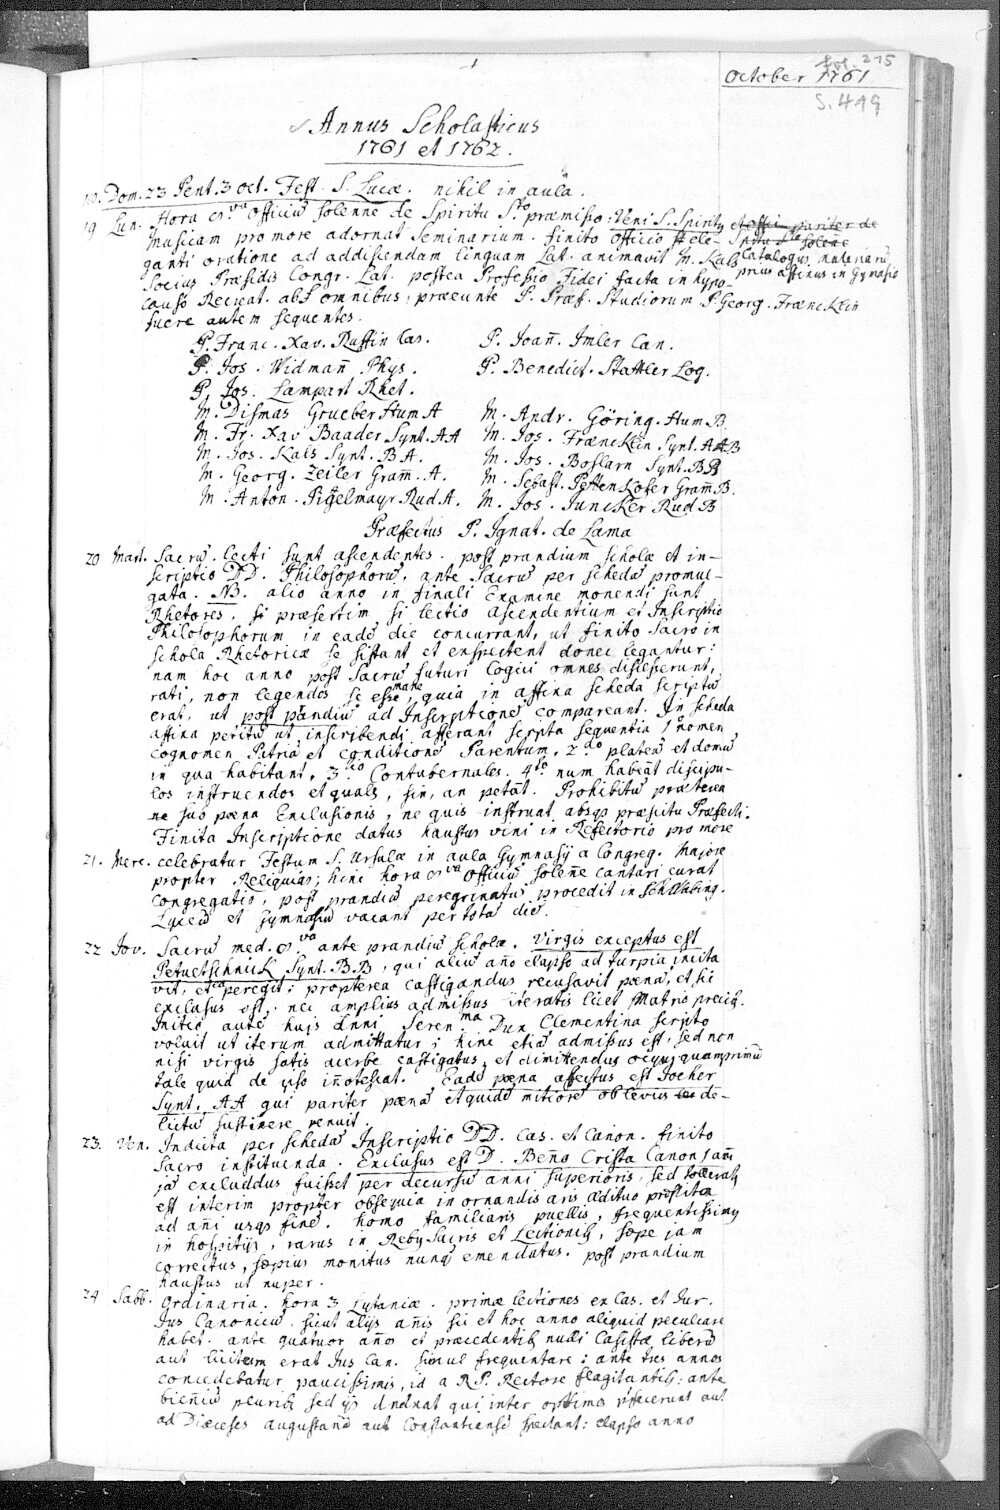 fol. 275
October 1761
S. 449
Annus Scholasticus
1761 et 1762.
18. Dom. 23 Pent. 3 Oct. Fest. S. Lucæ. nihil in aula.
19 Lun. Hora 8va Officiū solenne de Spiritu Sto præmisso: Veni S. Spirit9
Musicam pro more adornat Seminarium. finito Officio ele-
ganti oratione ad addiscendam linguam Lat. animavit M. Kals
Socius Præsidis Congr. Lat. postea Professio Fidei facta in hypo-
causto Recreat. ab omnibus, præeunte P. Præf. Studiorum P. Georg. Fræncklin
fuere autem sequentes.
Catalogus materiarū
prius affixus in Gymnasio
P. Franc. Xav. Ruffin Cas. P. Joan̄. Imler Can.
P. Jos. Widman̄ Phys. P. Benedict. Stattler Log.
P. Jos. Lampart Rhet.
M. Dismas Grueber Hum A M. Andr. Göring. Hum B.
M. Fr. Xav Baader Synt. AA M. Jos. Fræncklin Synt. AB
M. Jos. Kals Synt. BA. M. Jos. Boslarn Synt. BB
M. Georg. Zeiler Gram̄. A. M. Sebast. Pettenkofer Gram̄ B.
M. Anton. Pigelmayr Rud. A. M. Jos. Juncker Rud B
Præfectus P. Ignat. de Lama
20 Mart. Sacrū. lecti sunt ascendentes. post prandium scholæ et in-
scriptio DD. Philosophorū. ante Sacrū per schedā promul-
gata. NB. alio anno in finali Examine monendi sunt
Rhetores, si præsertim si lectio ascendentium et Inscriptio
Philosophorum in eadē die concurrant, ut finito Sacro in
schola Rhetoricæ se sistant et exspectent donec legantur:
nam hoc anno post Sacrū futuri Logici omnes discesserunt,
rati, non legendos se esse mane, quia in affixa scheda scriptū
erat, ut post prandiū ad Inscriptionē compareant. In scheda
affixa petitū ut inscribendi afferant scripta sequentia 1o nomen
cognomen Patriā et conditionē Parentum, 2do plateā et domū
in qua habitant, 3tio Contubernales. 4to num habeāt discipu-
los instruendos et quales, sin, an petāt. Prohibitū præterea
ne sub pœna Exclusionis, ne quis instruat absq9 præscitu Præfecti.
Finita Inscriptione datus haustus vini in Refectorio pro more
21. Merc. celebratur Festum S. Ursulæ in aula Gymnasij a Congreg. Majore
propter Reliquias; hinc hora 8va Officiū solen̄e cantari curat
congregatio, post prandiū peregrinatū procedit in Schwabing.
Lyceū et Gymnasiū vacant per totā diē.
22 Jov. Sacrū med. 8va ante prandiū scholæ. Virgis exceptus est
Petuetschnick Synt. BB, qui aliū an̄o elapso ad turpia incita
vit, et peregit; propterea castigandus recusavit pœnā, et sic
exclusus est, nec amplius admissus iteratis licet Matris precib9.
Initio autē huj9 Anni Seren.ma Dux Clementina scripto
voluit ut iterum admittatur; hinc etiā admissus est, sed non
nisi virgis satis acerbe castigatus, et dimittendus ocyus quamprimū
tale quid de ipso in̄otescat. Eadē pœna affectus est Jocher
Synt. AA qui pariter pœnā et quidē mitiorē ob levius de-
lictū sustinere renuit.
23. Ven. Indicta per schedā Inscriptio DD. Cas. et Canon. finito
Sacro instituenda. Exclusus est D. Beno Crista Canon 1 an̄i
jā excludendus fuisset per decursū anni superioris, sed toleratus
est interim propter obsequia in ornandis aris ædituo præstita
ad an̄i usq9 finē. homo familiaris puellis, frequentissim9
in hospitijs, rarus in Reb9 Sacris et Lectionib9, sæpe jam
correctus, sæpius monitus nunq̄ emendatus. post prandium
haustus ut nuper.
24 Sabb. Ordinaria. hora 3 Lytaniæ. primæ lectiones ex Cas. et Jur.
Jus Canonicū, sicut alijs an̄is sic et hoc anno aliquid peculiare
habet. ante quatuor an̄os et præcedentib9 nulli Casistæ liberū
aut licitum erat Jus Can. simul frequentare: ante tres annos
concedebatur paucissimis, id a R.P. Rectore flagitantib9: ante
bien̄iū plurib9 sed ijs qui inter optimos aut
ad Diœceses augustanā aut Constantiensē spectant: elapso anno